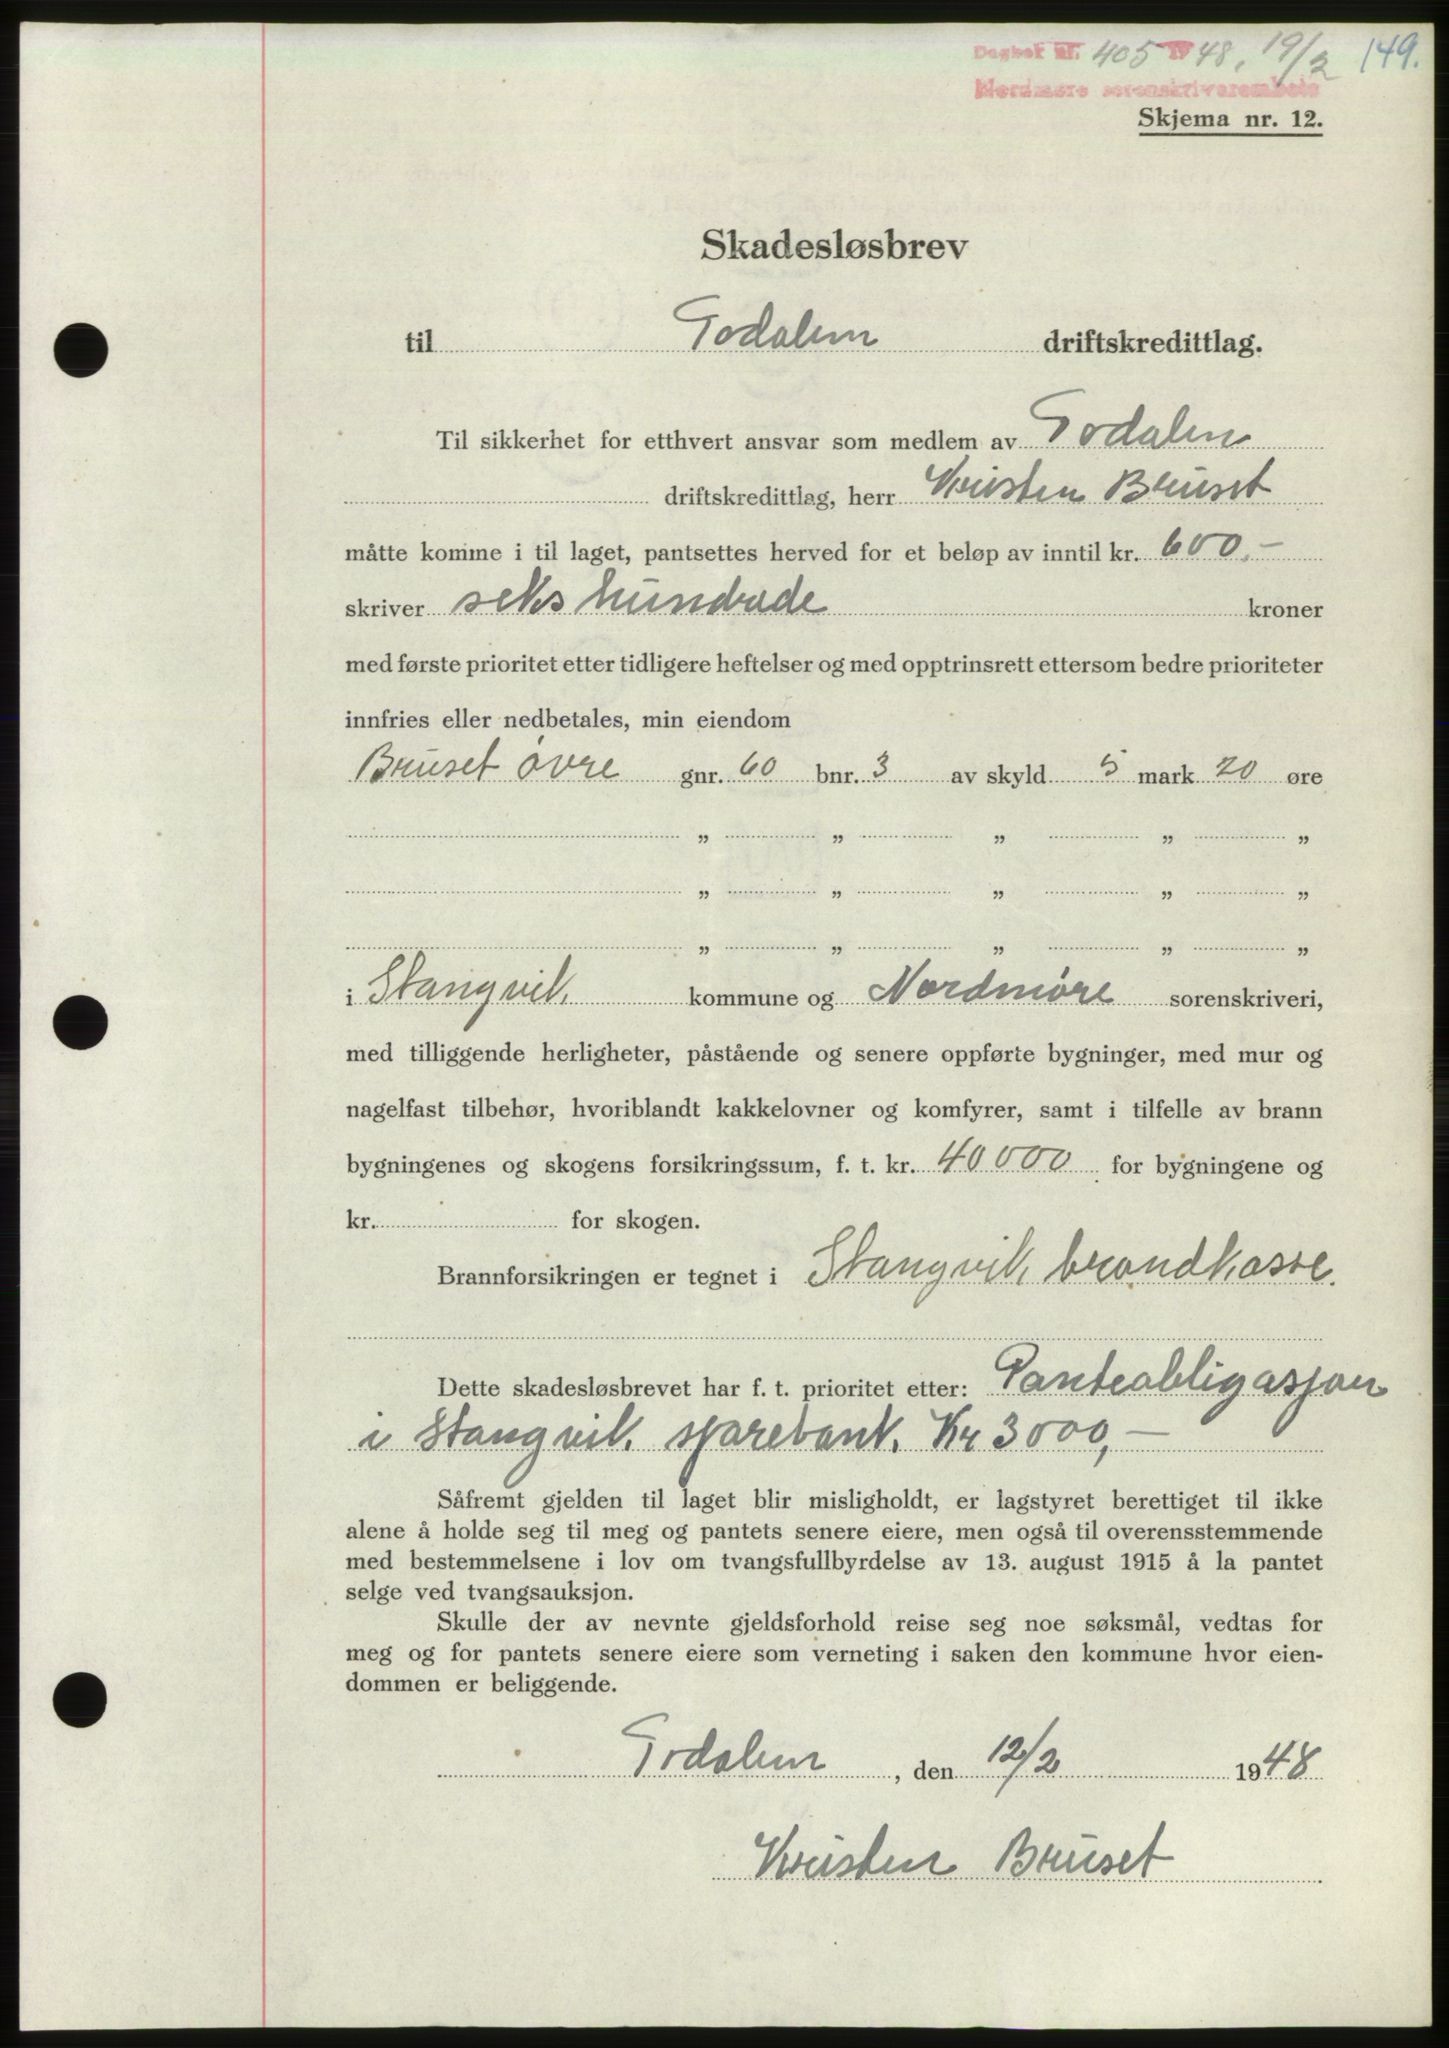 Dagbok nr. 405 1948, 19/2 149.
Nordmøre sorenskriverembete
Skjema nr. 12.
Skadesløsbrev
til Todalen driftskredittlag.
Til sikkerhet for etthvert ansvar som medlem av Todalen
driftskredittlag, herr Kristen Bruset
måtte komme i til laget, pantsettes herved for et beløp av inntil kr. 600,-
skriver sekshundrade kroner
med første prioritet etter tidligere heftelser og med opptrinsrett ettersom bedre prioriteter
innfries eller nedbetales, min eiendom
Bruset øvre gnr. 60 bnr. 3 av skyld 5 mark 20 øre
„ „ „ „ „
„ „ „ „ „
„ „ „ „ „
i Stangvik kommune og Nordmøre sorenskriveri,
med tilliggende herligheter, påstående og senere oppførte bygninger, med mur og
nagelfast tilbehør, hvoriblandt kakkelovner og komfyrer, samt i tilfelle av brann
bygningenes og skogens forsikringssum, f. t. kr. 40000 for bygningene og
kr. for skogen.
Brannforsikringen er tegnet i Stangvik brandkasse.
Dette skadesløsbrevet har f. t. prioritet etter: Panteobligasjon
i Stangvik sparebank. Kr 3000,-
Såfremt gjelden til laget blir misligholdt, er lagstyret berettiget til ikke
alene å holde seg til meg og pantets senere eiere, men også til overensstemmende
med bestemmelsene i lov om tvangsfullbyrdelse av 13. august 1915 å la pantet
selge ved tvangsauksjon.
Skulle der av nevnte gjeldsforhold reise seg noe søksmål, vedtas for
meg og for pantets senere eiere som verneting i saken den kommune hvor eien-
dommen er beliggende.
Todalen, den 12/2 1948
Kristen Bruset